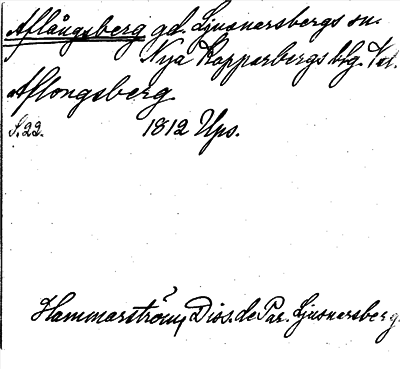 Aflångsberg gd. Ljusnarsbergs sn.
Nya Kopparbergs bslg. Vstm.
Aflongsberg
S. 22. 1812 Ups.
Hammarström, Diss. de Par. Ljusnarsberg.